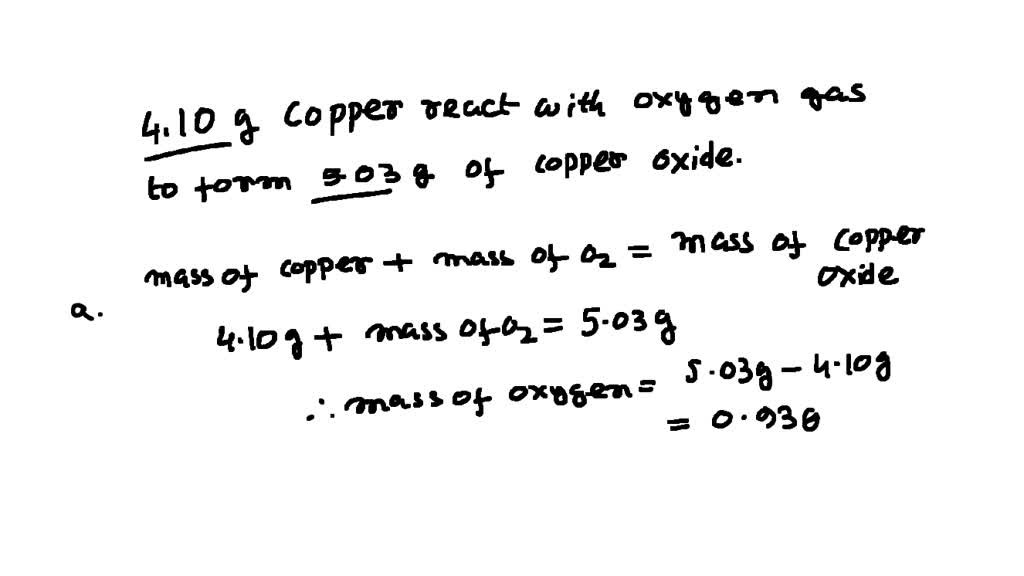 4.10 g copper react with oxygen gas
to form 5.03 g of copper oxide.
mass of copper + mass of O2 = mass of copper
oxide
a.
4.10g + mass of O2 = 5.03g
∴ mass of oxygen = 5.03g - 4.10g
= 0.93g